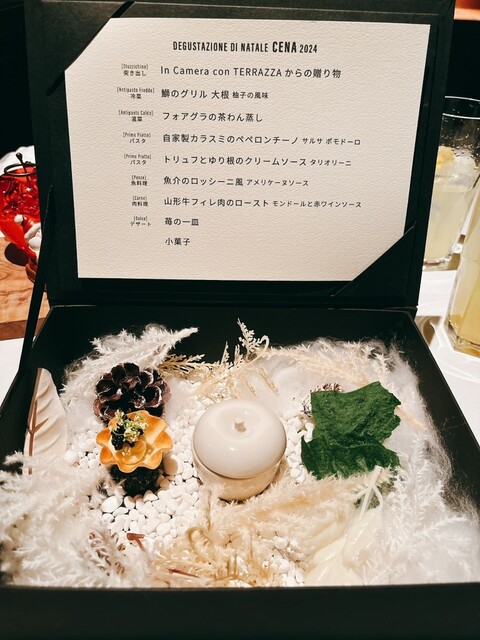 DEGUSTAZIONE DI NATALE CENA 2024
[Stuzzichino] 突き出し In Camera con TERRAZZA からの贈り物
[Antipasto Freddo] 冷菜 鰤のグリル 大根 柚子の風味
[Antipasto Caldo] 温菜 フォアグラの茶わん蒸し
[Primo Piatto] パスタ 自家製カラスミのペペロンチーノ サルサ ポモドーロ
[Primo Piatto] パスタ トリュフとゆり根のクリームソース タリオリーニ
[Pesce] 魚料理 魚介のロッシーニ風 アメリケーヌソース
[Carne] 肉料理 山形牛フィレ肉のロースト モンドールと赤ワインソース
[Dolce] デザート 苺の一皿
小菓子